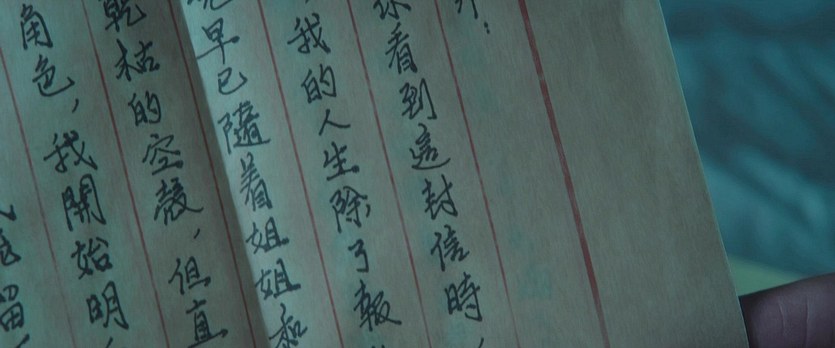 你看到這封信時，
，我的人生除了報
早已隨着姐姐和
乾枯的空殼，但直
角色，我開始明
留